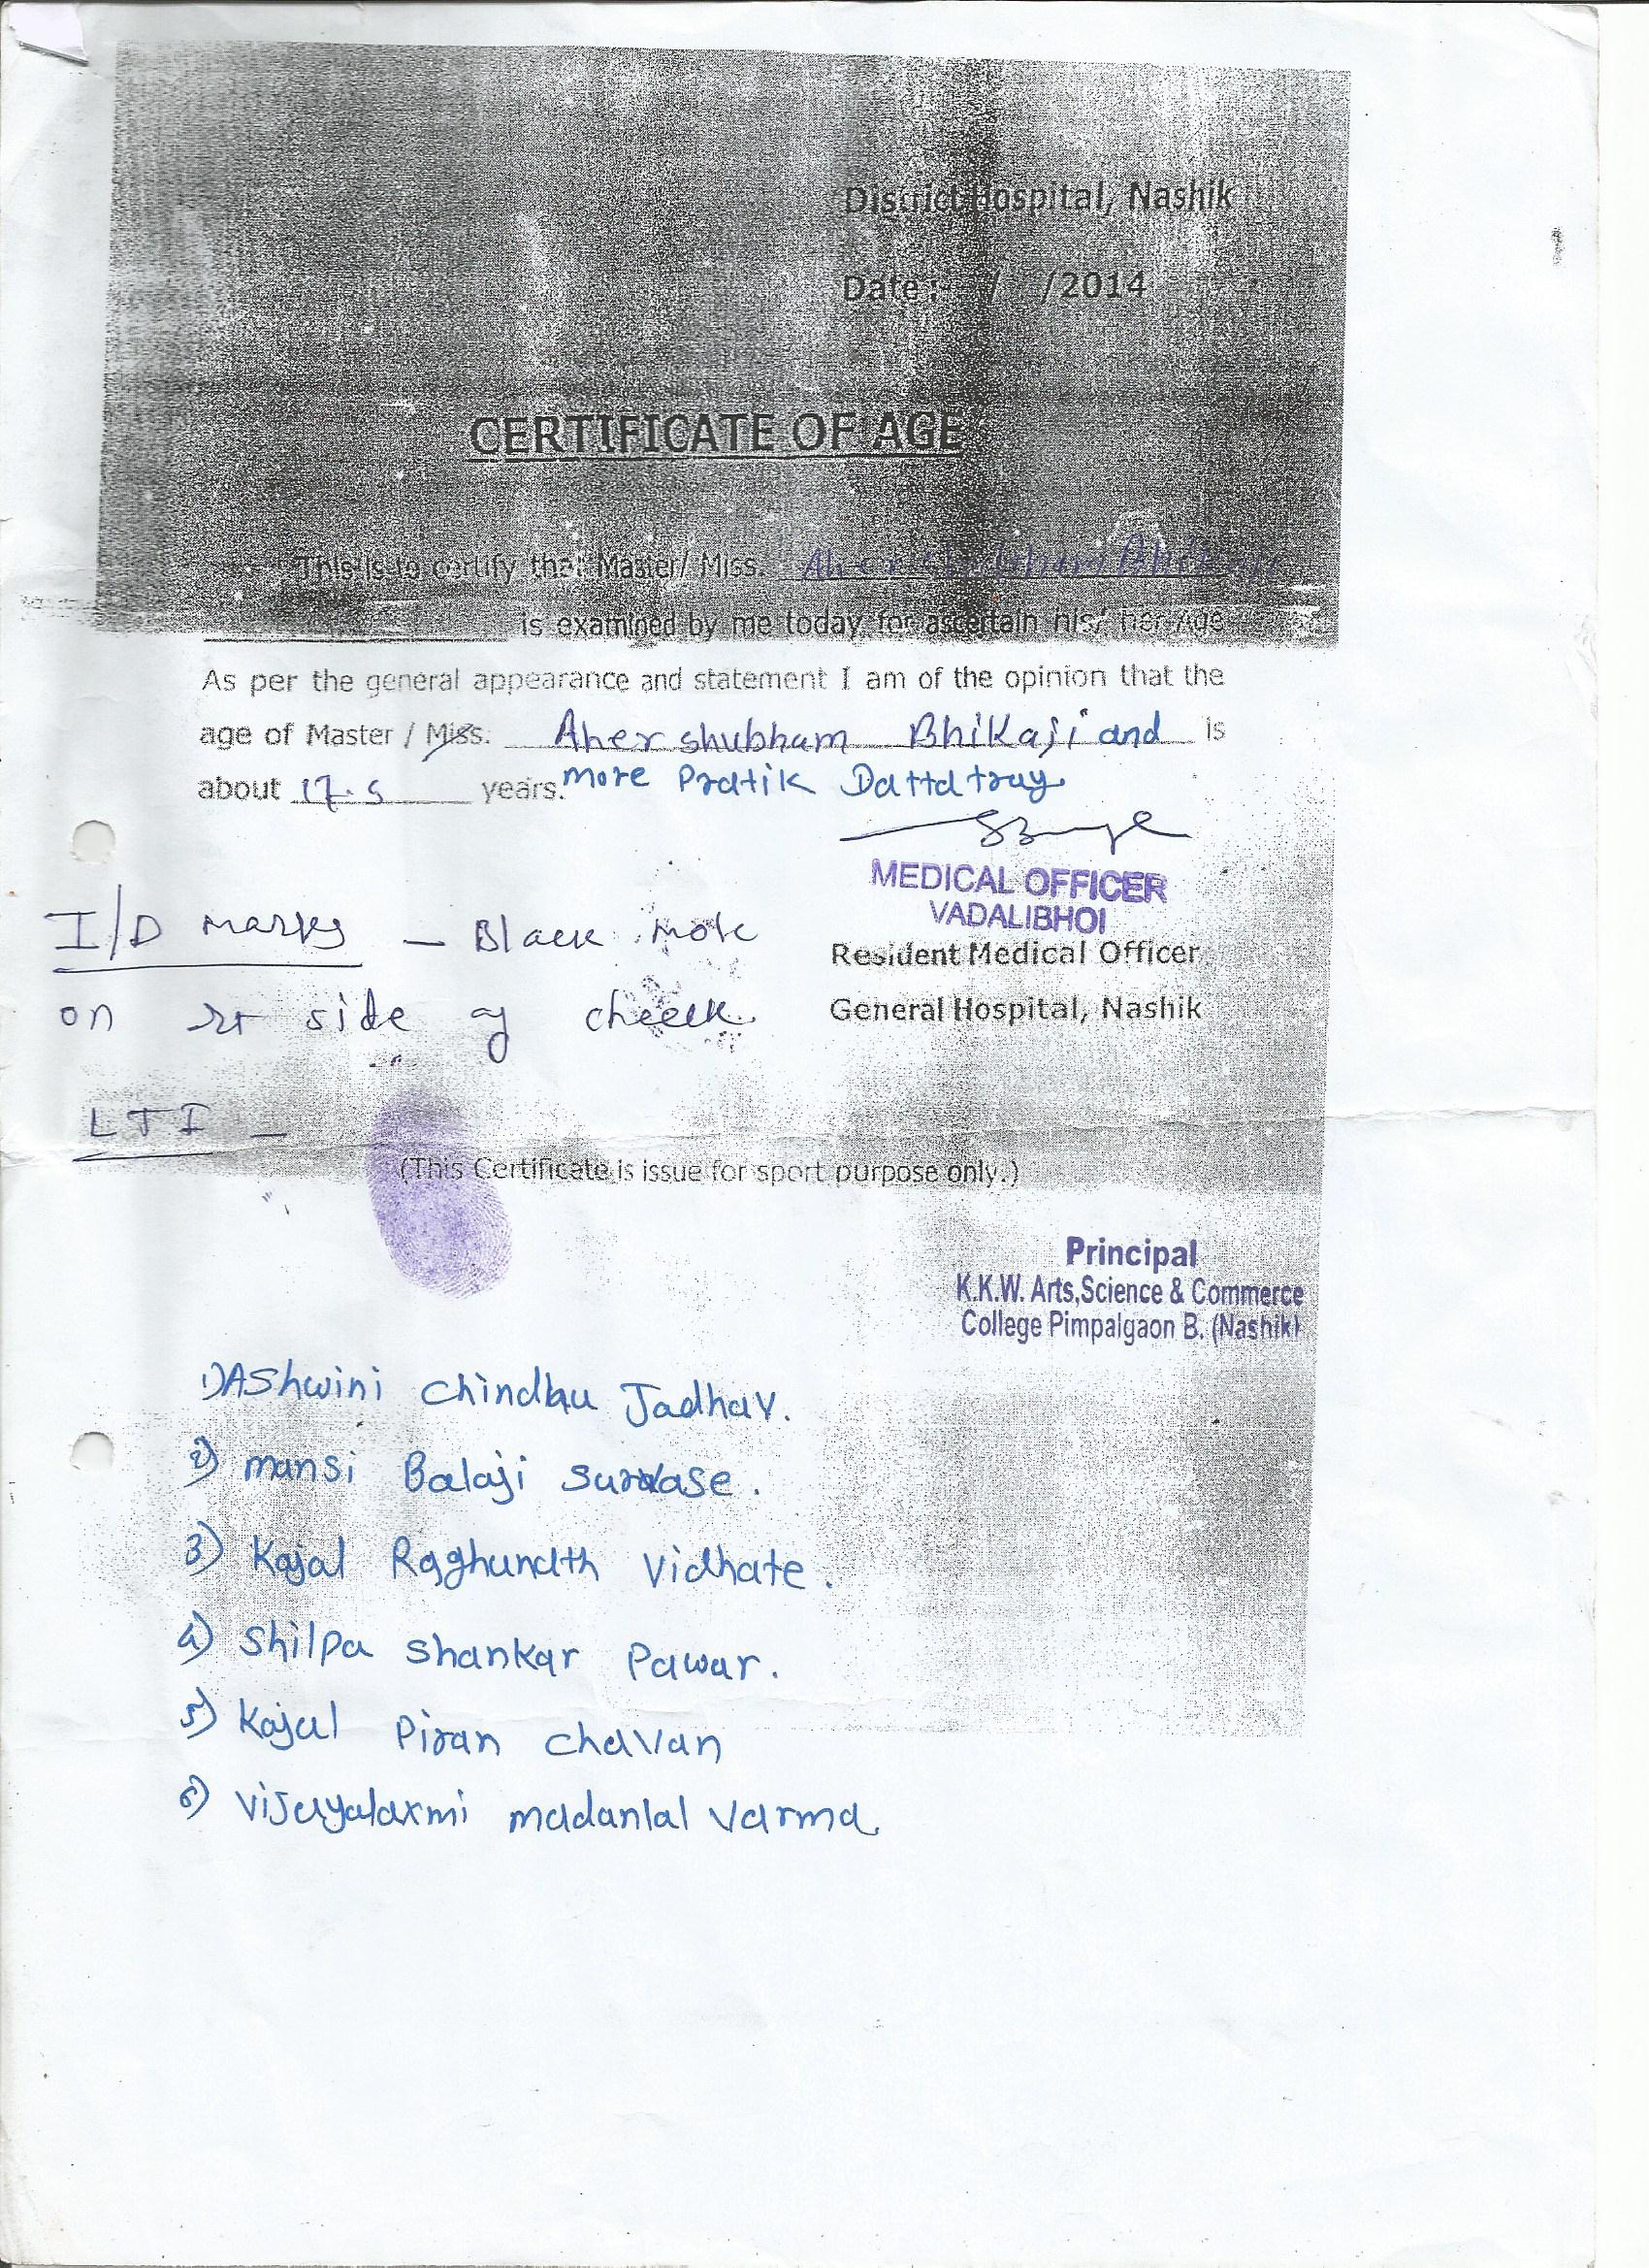 District Hospital, Nashik
Date :- / /2014
CERTIFICATE OF AGE
This is to certify that Master/ Miss. Aher Shubham Bhikaji
is examined by me today for ascertain his/ her Age
As per the general appearance and statement I am of the opinion that the
age of Master / Miss. Aher shubham Bhikaji and is
about 17.5 years. more Pratik Dattatray
MEDICAL OFFICER
VADALIBHOI
I/D marks - Black mole
Resident Medical Officer
on rt side of cheek
General Hospital, Nashik
LTI -
(This Certificate is issue for sport purpose only.)
Principal
K.K.W. Arts,Science & Commerce
College Pimpalgaon B. (Nashik)
1) Ashwini Chindhu Jadhav.
2) mansi Balaji Survase.
3) Kajal Raghunath Vidhate.
4) Shilpa Shankar Pawar.
5) Kajal Piran Chavan
6) Vijayalaxmi madanlal Varma